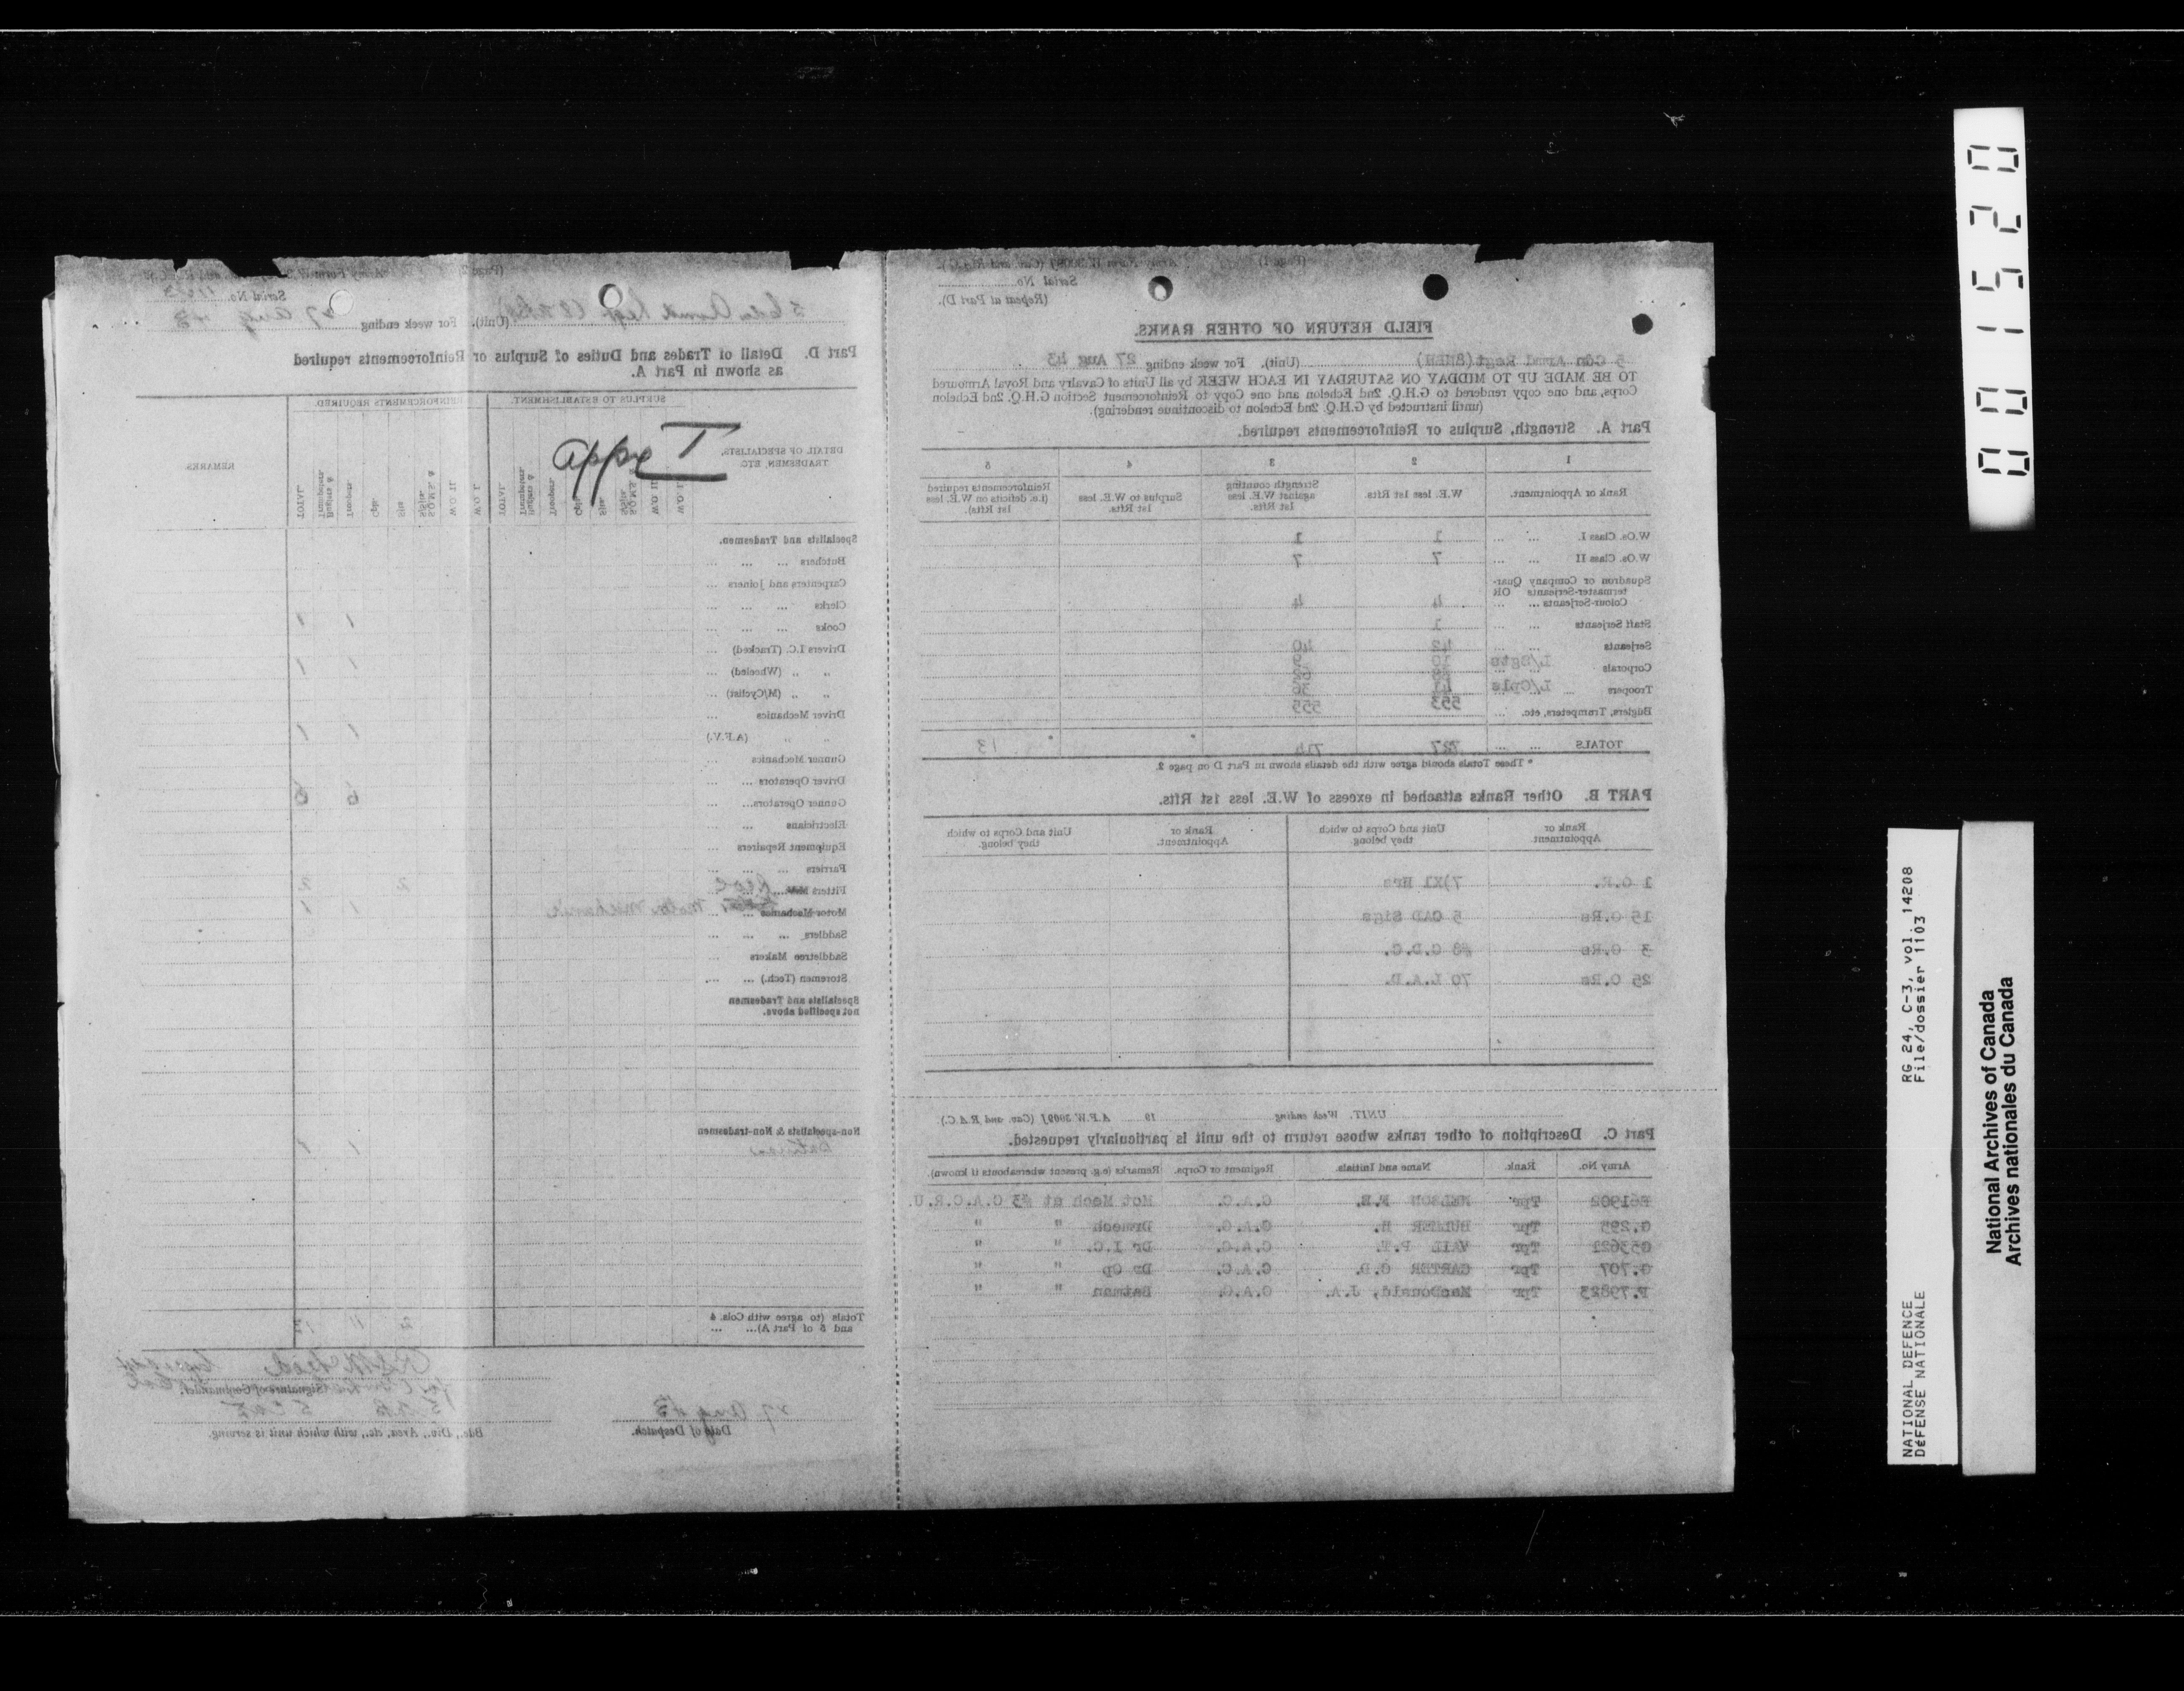 (Page 1) Army Form W.3009J (Cav. and R.A.C.).
Serial No.
(Repeat at Part D).
FIELD RETURN OF OTHER RANKS.
5 Cdn Armd Regt (8NBH) (Unit). For week ending 27 Aug 43
TO BE MADE UP TO MIDDAY ON SATURDAY IN EACH WEEK by all Units of Cavalry and Royal Armoured
Corps, and one copy rendered to G.H.Q. 2nd Echelon and one Copy to Reinforcement Section G.H.Q. 2nd Echelon
(until instructed by G.H.Q. 2nd Echelon to discontinue rendering).
Part A. Strength, Surplus or Reinforcements required.
1 2 3 4 5
Rank or Appointment. W.E. less 1st Rfts. Strength counting against W.E. less 1st Rfts. Surplus to W.E. less 1st Rfts. Reinforcements required (i.e. deficits on W.E. less 1st Rfts).
W.Os. Class I. ... ... 1 1
W.Os. Class II ... ... 7 7
Squadron or Company Quar-
termaster-Serjeants OR
Colour-Serjeants ... ... 4 4
Staff Serjeants ... 1
Serjeants 42 40
Corporals L/Sgts
Troopers L/Cpls
Buglers, Trumpeters, etc. ... 553 555
TOTALS ... ... 727 714 * * 13
* These Totals should agree with the details shown in Part D on page 2.
PART B. Other Ranks attached in excess of W.E. less 1st Rfts.
Rank or Appointment. Unit and Corps to which they belong. Rank or Appointment. Unit and Corps to which they belong.
1 O.R. 7)XI Hrs
15 O.Rs 5 CAD Sigs
3 O.Rs #8 C.D.C.
25 O.Rs 70 L.A.D.
UNIT. Week ending 19 A.F.W. 3009J (Cav. and R.A.C.).
Part C. Description of other ranks whose return to the unit is particularly requested.
Army No. Rank. Name and Initials. Regiment or Corps. Remarks (e.g. present whereabouts if known).
F61902 Tpr NELSON F.E. C.A.C. Mot Mech at #3 C.A.C.R.U.
G.295 Tpr BULMER H. C.A.C. Drmech " "
G53621 Tpr VAIL P.T. C.A.C. Dr I.C. " "
G.707 Tpr CARTER C.D. C.A.C. Dr Op " "
F.79823 Tpr MacDonald, J.A. C.A.C. Batman " "
(Page 2)
Serial No. 1103
5 Cdn Armd Regt (8 NBH) (Unit). For week ending 27 Aug 43
Part D. Detail of Trades and Duties of Surplus or Reinforcements required
as shown in Part A.
Appx I
DETAIL OF SPECIALISTS, TRADESMEN, ETC. SURPLUS TO ESTABLISHMENT. REINFORCEMENTS REQUIRED. REMARKS.
W.O. I. W.O. II. S.Q.M.S. & S/Sjts. Sjts. Cpls. Troopers. Buglers & Trumpeters. TOTAL.
W.O. I. W.O. II. S.Q.M.S. & S/Sjts. Sjts. Cpls. Troopers. Buglers & Trumpeters. TOTAL.
Specialists and Tradesmen.
Butchers ... ... ...
Carpenters and Joiners ...
Clerks ... ... ...
Cooks ... ... ... 1 1
Drivers I.C. (Tracked) ...
" " (Wheeled) ... 1 1
" " (M/Cyclist) ...
Driver Mechanics ...
" " (A.F.V.) 1 1
Gunner Mechanics ...
Driver Operators ... ...
Gunner Operators... ... 6 6
Electricians ... ...
Equipment Repairers ...
Farriers ... ... ...
Fitters ... 2 2
Motor Mechanics ... Motor Mechanic 1 1
Saddlers ... ... ...
Saddletree Makers ...
Storemen (Tech.) ... ...
Specialists and Tradesmen
not specified above.
Non-specialists & Non-tradesmen
Batman 1 1
Totals (to agree with Cols. 4
and 5 of Part A)... ... 2 11 13
Signature of Commander.
27 Aug 43
Date of Despatch.
Bde., Div., Area, etc., with which unit is serving.
001520
NATIONAL DEFENCE RG 24, C-3, vol. 14208
DéFENSE NATIONALE File/dossier 1103
National Archives of Canada
Archives nationales du Canada